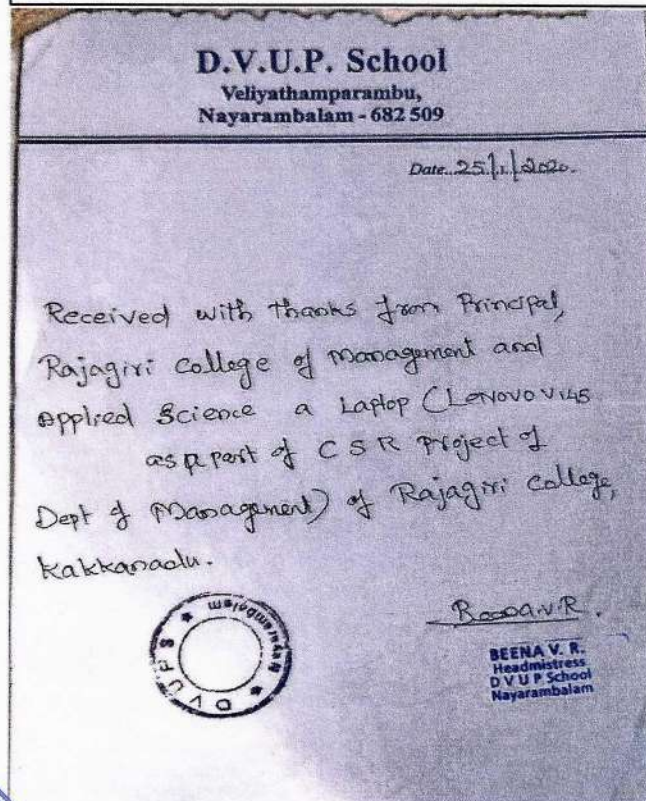 D.V.U.P. School
Veliyathamparambu,
Nayarambalam - 682 509
Date..25/1/2020.
Received with thanks from Principal,
Rajagiri College of Management and
Applied Science a Laptop (Lenovo V145
as a part of CSR Project of
Dept of Management) of Rajagiri College,
Kakkanadu.
D V U P S ★ Nayarambalam ★
Beena V.R.
BEENA V. R.
Headmistress
D V U P School
Nayarambalam